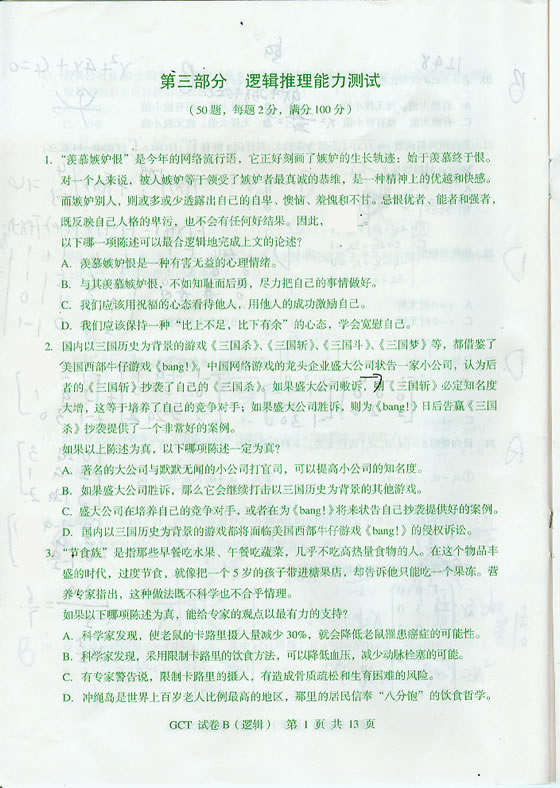 第三部分 逻辑推理能力测试
(50题,每题2分,满分100分)
1. “羡慕嫉妒恨”是今年的网络流行语,它正好刻画了嫉妒的生长轨迹:始于羡慕终于恨。
对一个人来说,被人嫉妒等于领受了嫉妒者最真诚的恭维,是一种精神上的优越和快感。
而嫉妒别人,则或多或少透露出自己的自卑、懊恼、羞愧和不甘。忌恨优者、能者和强者,
既反映自己人格的卑污,也不会有任何好结果。因此,______。
以下哪一项陈述可以最合逻辑地完成上文的论述?
A. 羡慕嫉妒恨是一种有害无益的心理情绪。
B. 与其羡慕嫉妒恨,不如知耻而后勇,尽力把自己的事情做好。
C. 我们应该用祝福的心态看待他人,用他人的成功激励自己。
D. 我们应该保持一种“比上不足,比下有余”的心态,学会宽慰自己。
2. 国内以三国历史为背景的游戏《三国杀》、《三国斩》、《三国斗》、《三国梦》等,都借鉴了
美国西部牛仔游戏《bang!》。中国网络游戏的龙头企业盛大公司状告一家小公司,认为后
者的《三国斩》抄袭了自己的《三国杀》。如果盛大公司败诉,则《三国斩》必定知名度
大增,这等于培养了自己的竞争对手;如果盛大公司胜诉,则为《bang!》日后告赢《三国
杀》抄袭提供了一个非常好的案例。
如果以上陈述为真,以下哪项陈述一定为真?
A. 著名的大公司与默默无闻的小公司打官司,可以提高小公司的知名度。
B. 如果盛大公司胜诉,那么它会继续打击以三国历史为背景的其他游戏。
C. 盛大公司在培养自己的竞争对手,或者在为《bang!》将来状告自己抄袭提供好的案例。
D. 国内以三国历史为背景的游戏都将面临美国西部牛仔游戏《bang!》的侵权诉讼。
3. “节食族”是指那些早餐吃水果、午餐吃蔬菜,几乎不吃高热量食物的人。在这个物品丰
盛的时代,过度节食,就像把一个5岁的孩子带进糖果店,却告诉他只能吃一个果冻。营
养专家指出,这种做法既不科学也不合乎情理。
如果以下哪项陈述为真,能给专家的观点以最有力的支持?
A. 科学家发现,使老鼠的卡路里摄入量减少30%,就会降低老鼠罹患癌症的可能性。
B. 科学家发现,采用限制卡路里的饮食方法,可以降低血压,减少动脉栓塞的可能。
C. 有专家警告说,限制卡路里的摄入,有造成骨质疏松和生育困难的风险。
D. 冲绳岛是世界上百岁老人比例最高的地区,那里的居民信奉“八分饱”的饮食哲学。
GCT 试卷B(逻辑) 第 1 页 共 13 页